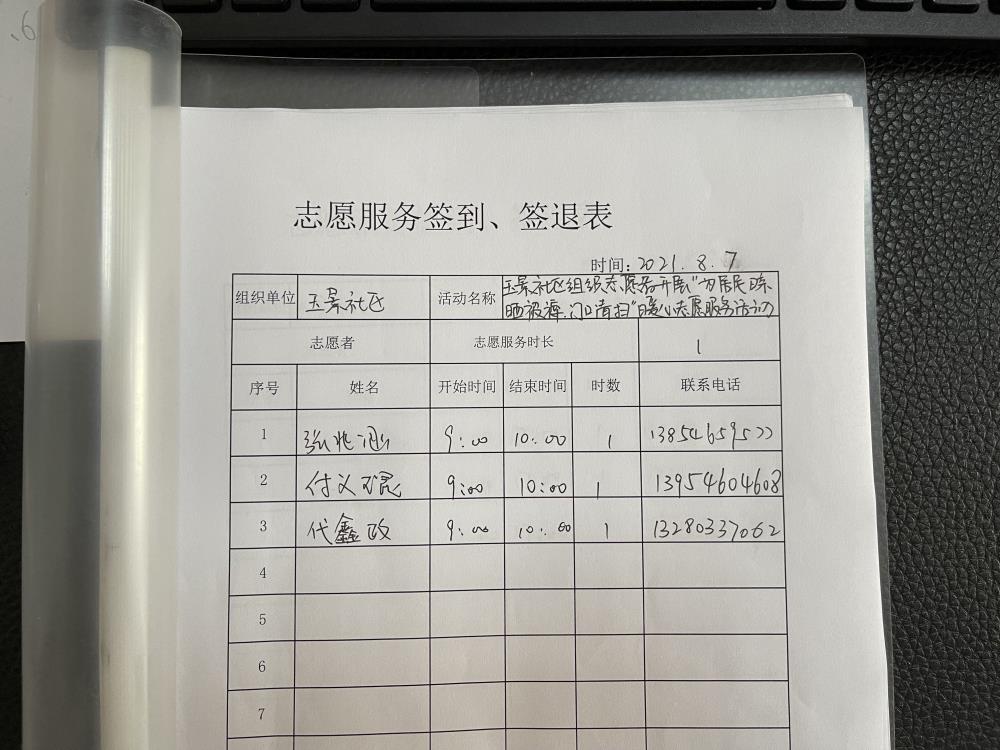 志愿服务签到、签退表
时间：2021.8.7
组织单位 玉景社区 活动名称 玉景社区组织志愿者开展"为居民晾
晒被褥、门口清扫"暖心志愿服务活动
志愿者 志愿服务时长 1
序号 姓名 开始时间 结束时间 时数 联系电话
1 张兆涵 9:00 10:00 1 13854659577
2 付义琨 9:00 10:00 1 13954604608
3 代鑫政 9:00 10:00 1 13280337062
4
5
6
7